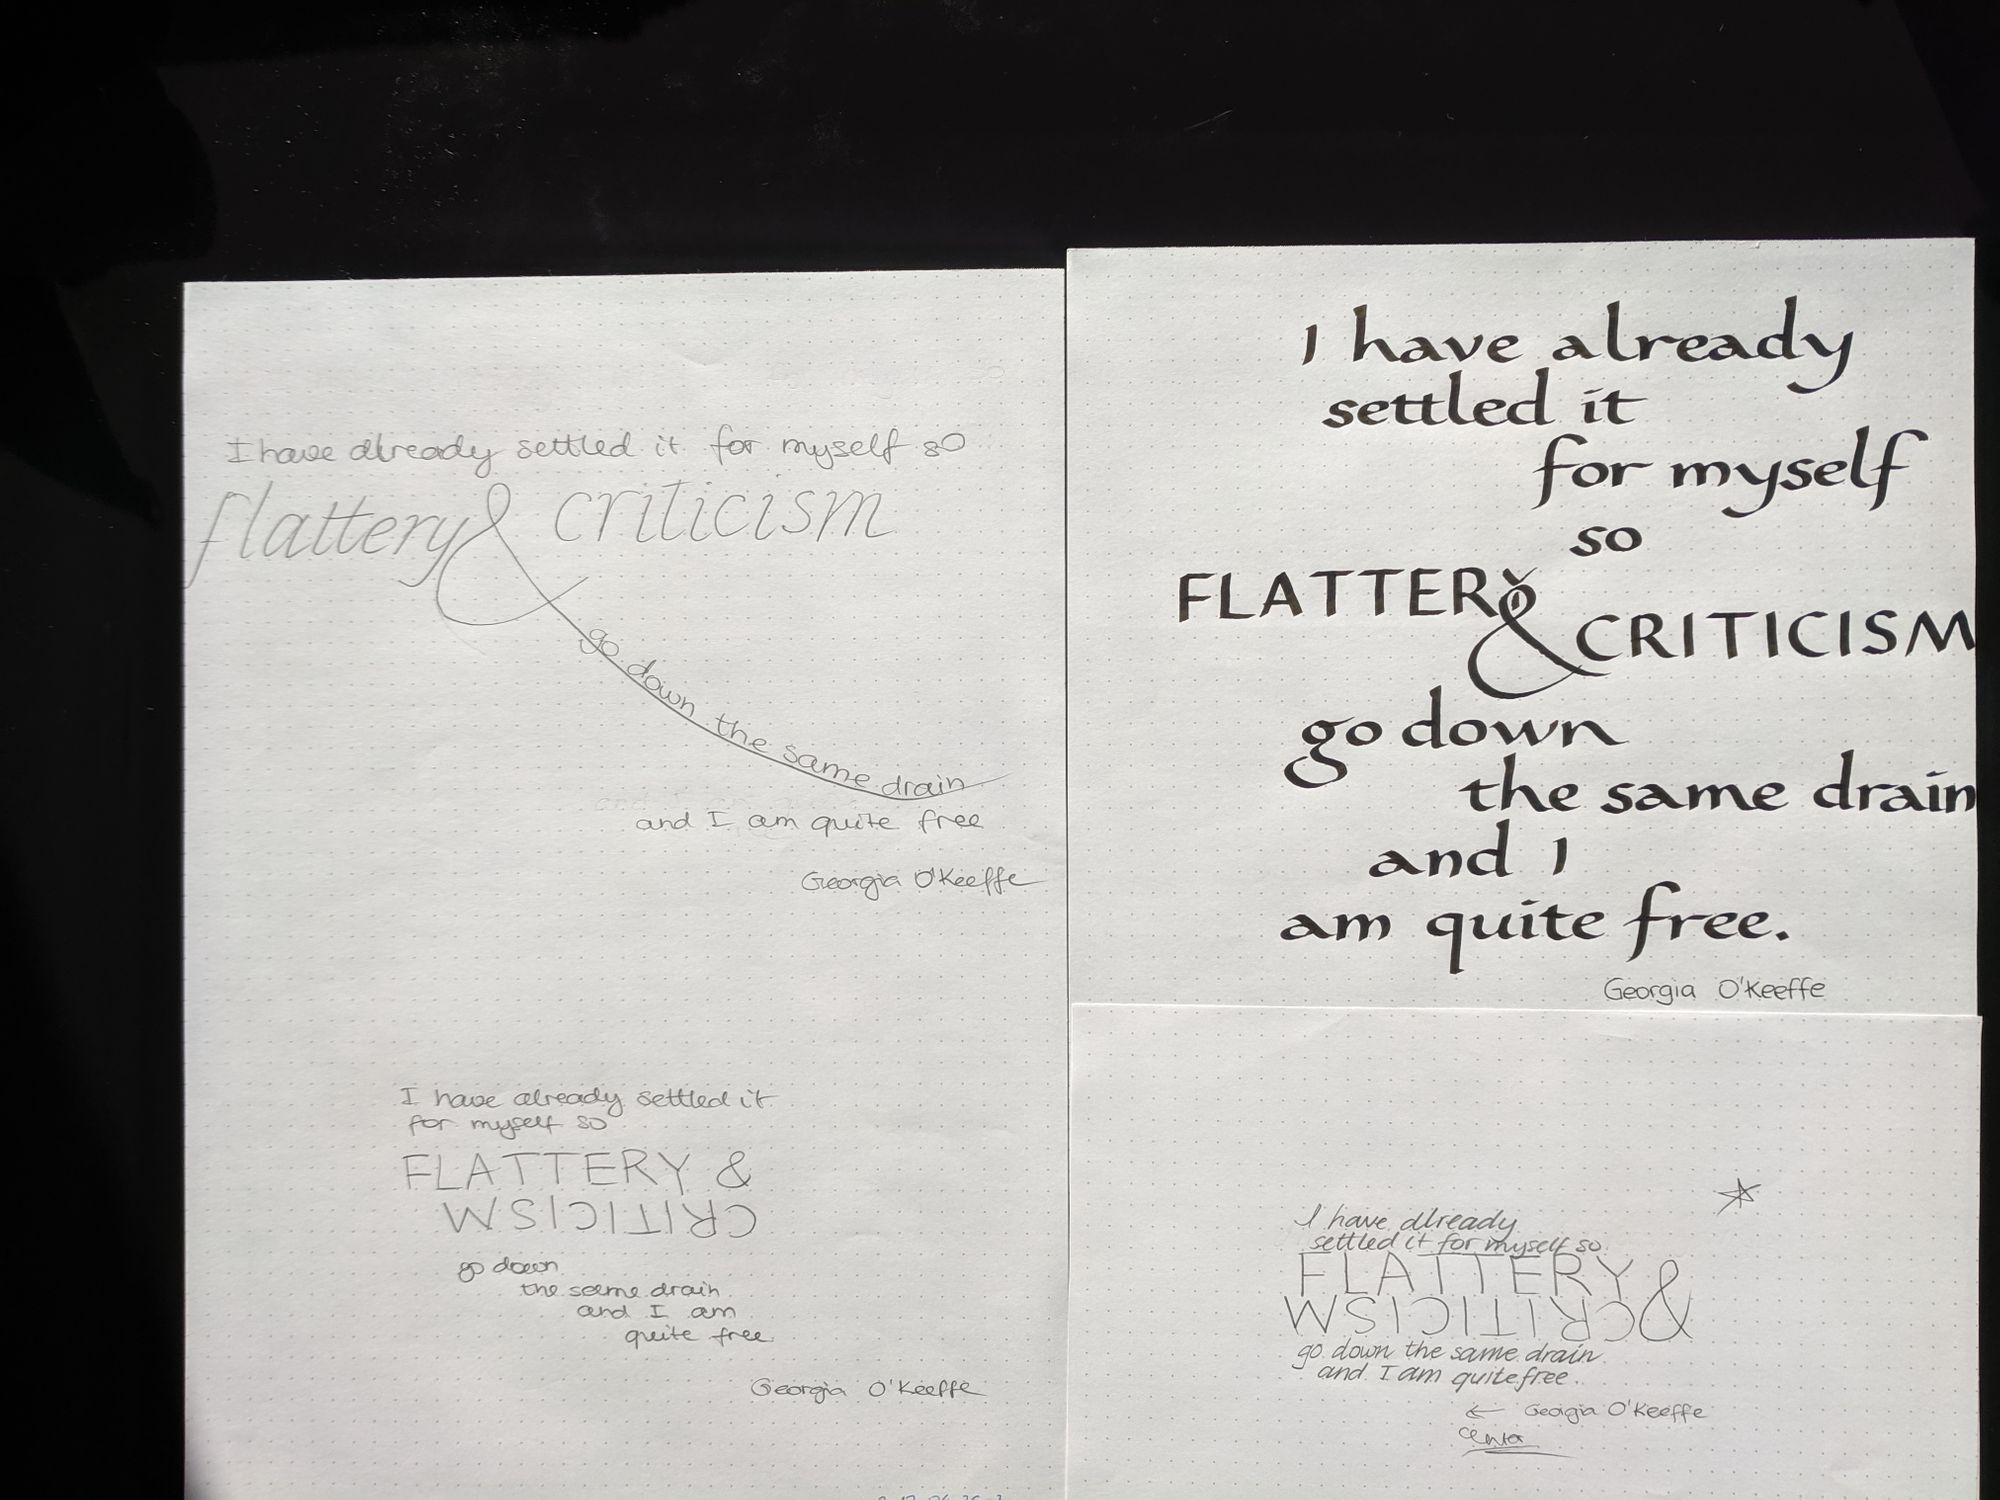 I have already settled it for myself so
flattery & criticism
go down the same drain
and I am quite free
Georgia O'Keeffe
I have already settled it
for myself so
FLATTERY &
CRITICISM
go down
the same drain
and I am
quite free
Georgia O'Keeffe
I have already
settled it
for myself
so
FLATTERY
& CRITICISM
go down
the same drain
and I
am quite free.
Georgia O'Keeffe
I have already
settled it for myself so
FLATTERY &
CRITICISM
go down the same drain
and I am quite free.
← Georgia O'Keeffe
center